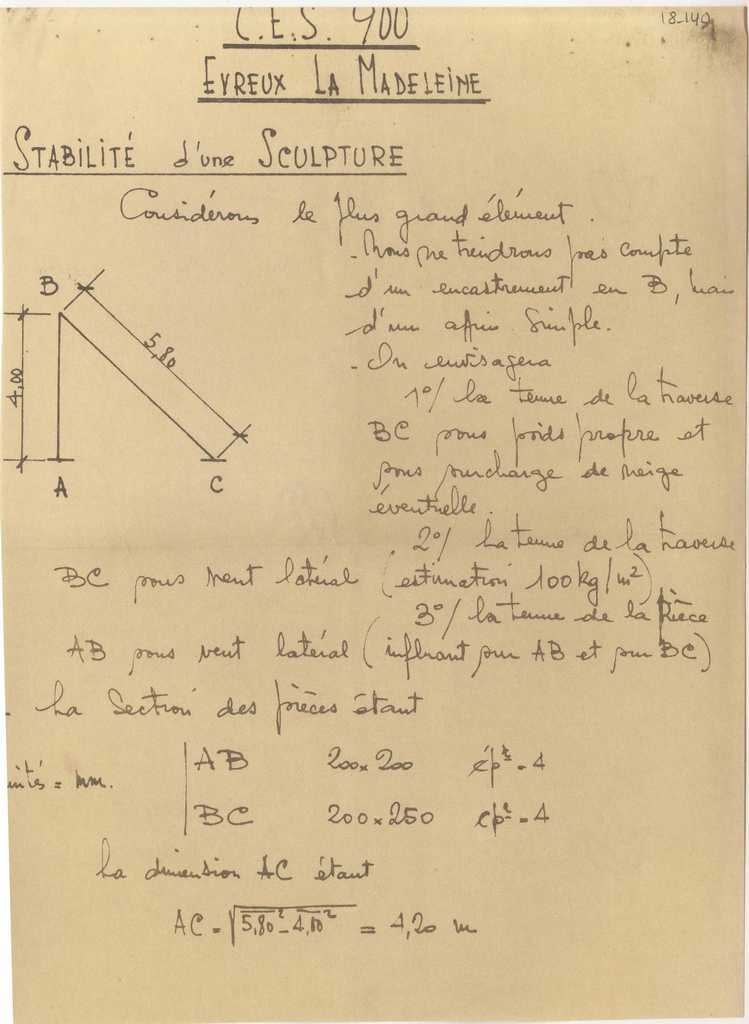 18-140
C.E.S. 900
EVREUX LA MADELEINE
STABILITÉ d'une SCULPTURE
Considérons le plus grand élément.
- Nous ne tiendrons pas compte
d'un encastrement en B, mais
d'un appui simple.
- On envisagera
1°/ la tenue de la traverse
BC sous poids propre et
sous surcharge de neige
éventuelle.
2°/ La tenue de la traverse
BC sous vent latéral (estimation 100 kg/m²)
3°/ la tenue de la pièce
AB sous vent latéral (influant sur AB et sur BC)
B
5,80
4,00
A
C
- La section des pièces étant
AB 200 x 200 épr = 4
unités = mm.
BC 200 x 250 épr = 4
La dimension AC étant
AC = √5,80² - 4,00² = 4,20 m